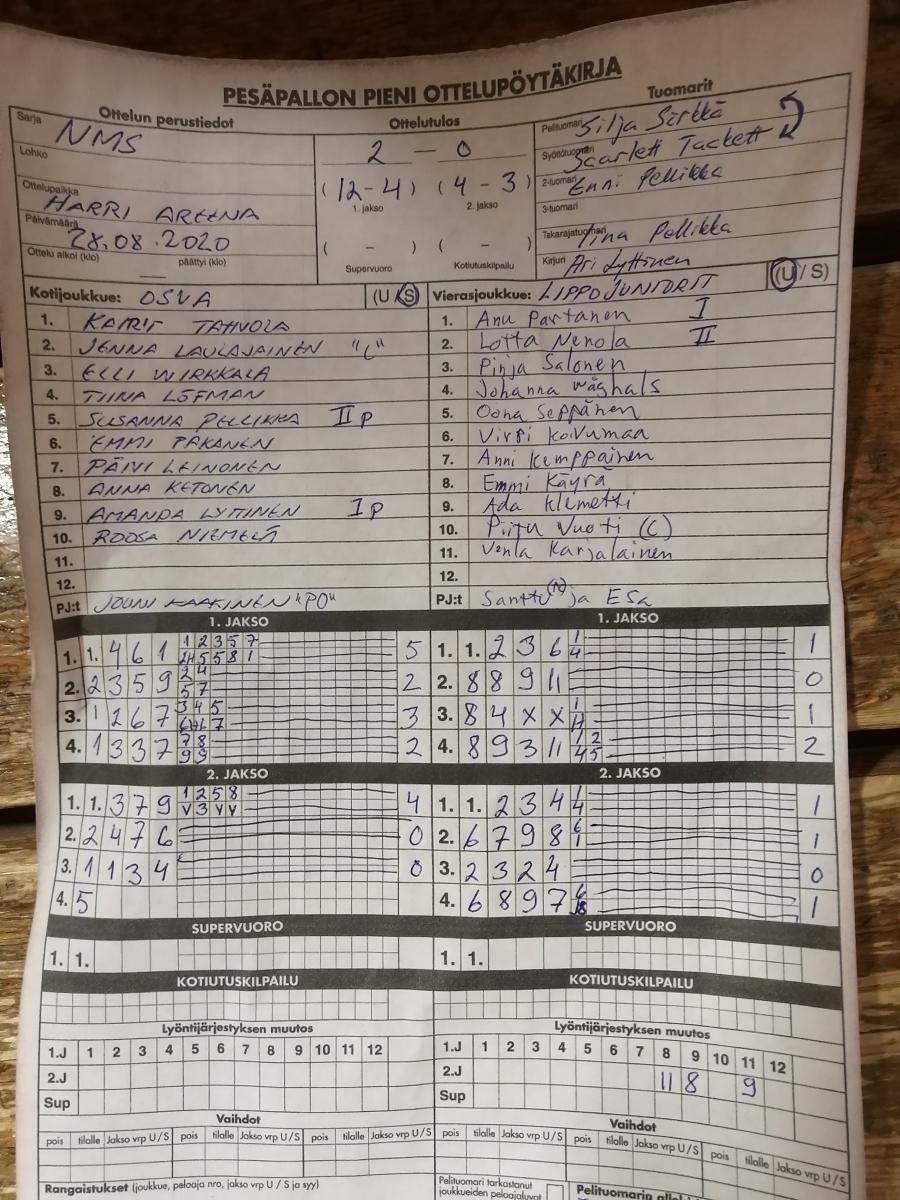 PESÄPALLON PIENI OTTELUPÖYTÄKIRJA
Ottelun perustiedot
Sarja NMS
Lohko
Ottelupaikka HARRI AREENA
Päivämäärä 28.08.2020
Ottelu alkoi (klo) päättyi (klo)
Ottelutulos
2 — 0
(12-4) (4-3)
1. jakso 2. jakso
( - ) ( - )
Supervuoro Kotiutuskilpailu
Tuomarit
Pelituomari Silja Sirkkä
Syöttötuomari Scarlett Tackett
2-tuomari Enni Pellikka
3-tuomari
Takarajatuomari Iina Pellikka
Kirjuri Ari Lyttinen
Kotijoukkue: OSVA (U/S)
1. TAHVOLA
2. JENNA LAULAJAINEN "C"
3. ELLI WIRKKALA
4. TIINA LÖFMAN
5. SUSANNA PELLIKKA II P
6. EMMI TAKANEN
7. PÄIVI LEINONEN
8. ANNA KETONEN
9. AMANDA LYTTINEN I P
10. ROOSA NIEMELÄ
11.
12.
PJ:t JOUNI KAAKINEN "PO"
Vierasjoukkue: LIPPO JUNIORIT (U/S)
1. Anu Partanen I
2. Lotta Nenola II
3. Pinja Salonen
4. Johanna Wåghals
5. Oona Seppänen
6. Virpi Koivumaa
7. Anni Kemppainen
8. Emmi Käyrä
9. Ada Klemetti
10. Piitu Vuoti (C)
11. Venla Karjalainen
12.
PJ:t Santtu (N) ja Esa
1. JAKSO
1. 1. 4 6 1 1 2 3 5 7 5
2. 2 3 5 9 2 4 5 7 2
3. 1 2 6 7 3 4 5 3
4. 1 3 3 7 7 8 9 9 2
2. JAKSO
1. 1. 3 7 9 1 2 5 8 V 3 V V 4
2. 2 4 7 6 0
3. 1 1 3 4 0
4. 5
SUPERVUORO
1. 1.
KOTIUTUSKILPAILU
1. JAKSO
1. 1. 2 3 6 1 4 1
2. 8 8 9 11 0
3. 8 4 X X 1 11 1
4. 8 9 3 11 1 2 4 5 2
2. JAKSO
1. 1. 2 3 4 1 4 1
2. 6 7 9 8 6 1 1
3. 2 3 2 4 0
4. 6 8 9 7 6 1
SUPERVUORO
1. 1.
KOTIUTUSKILPAILU
Lyöntijärjestyksen muutos
1.J 1 2 3 4 5 6 7 8 9 10 11 12
2.J
Sup
Vaihdot
pois tilalle Jakso vrp U/S pois tilalle Jakso vrp U/S pois tilalle Jakso vrp U/S
Rangaistukset (joukkue, pelaaja nro, jakso vrp U / S ja syy)
Lyöntijärjestyksen muutos
1.J 1 2 3 4 5 6 7 8 9 10 11 12
2.J 11 8 9
Sup
Vaihdot
pois tilalle Jakso vrp U/S pois tilalle Jakso vrp U/S pois tilalle Jakso vrp U/S
Pelituomari tarkastanut
joukkueiden pelaajaluvat
Pelituomarin